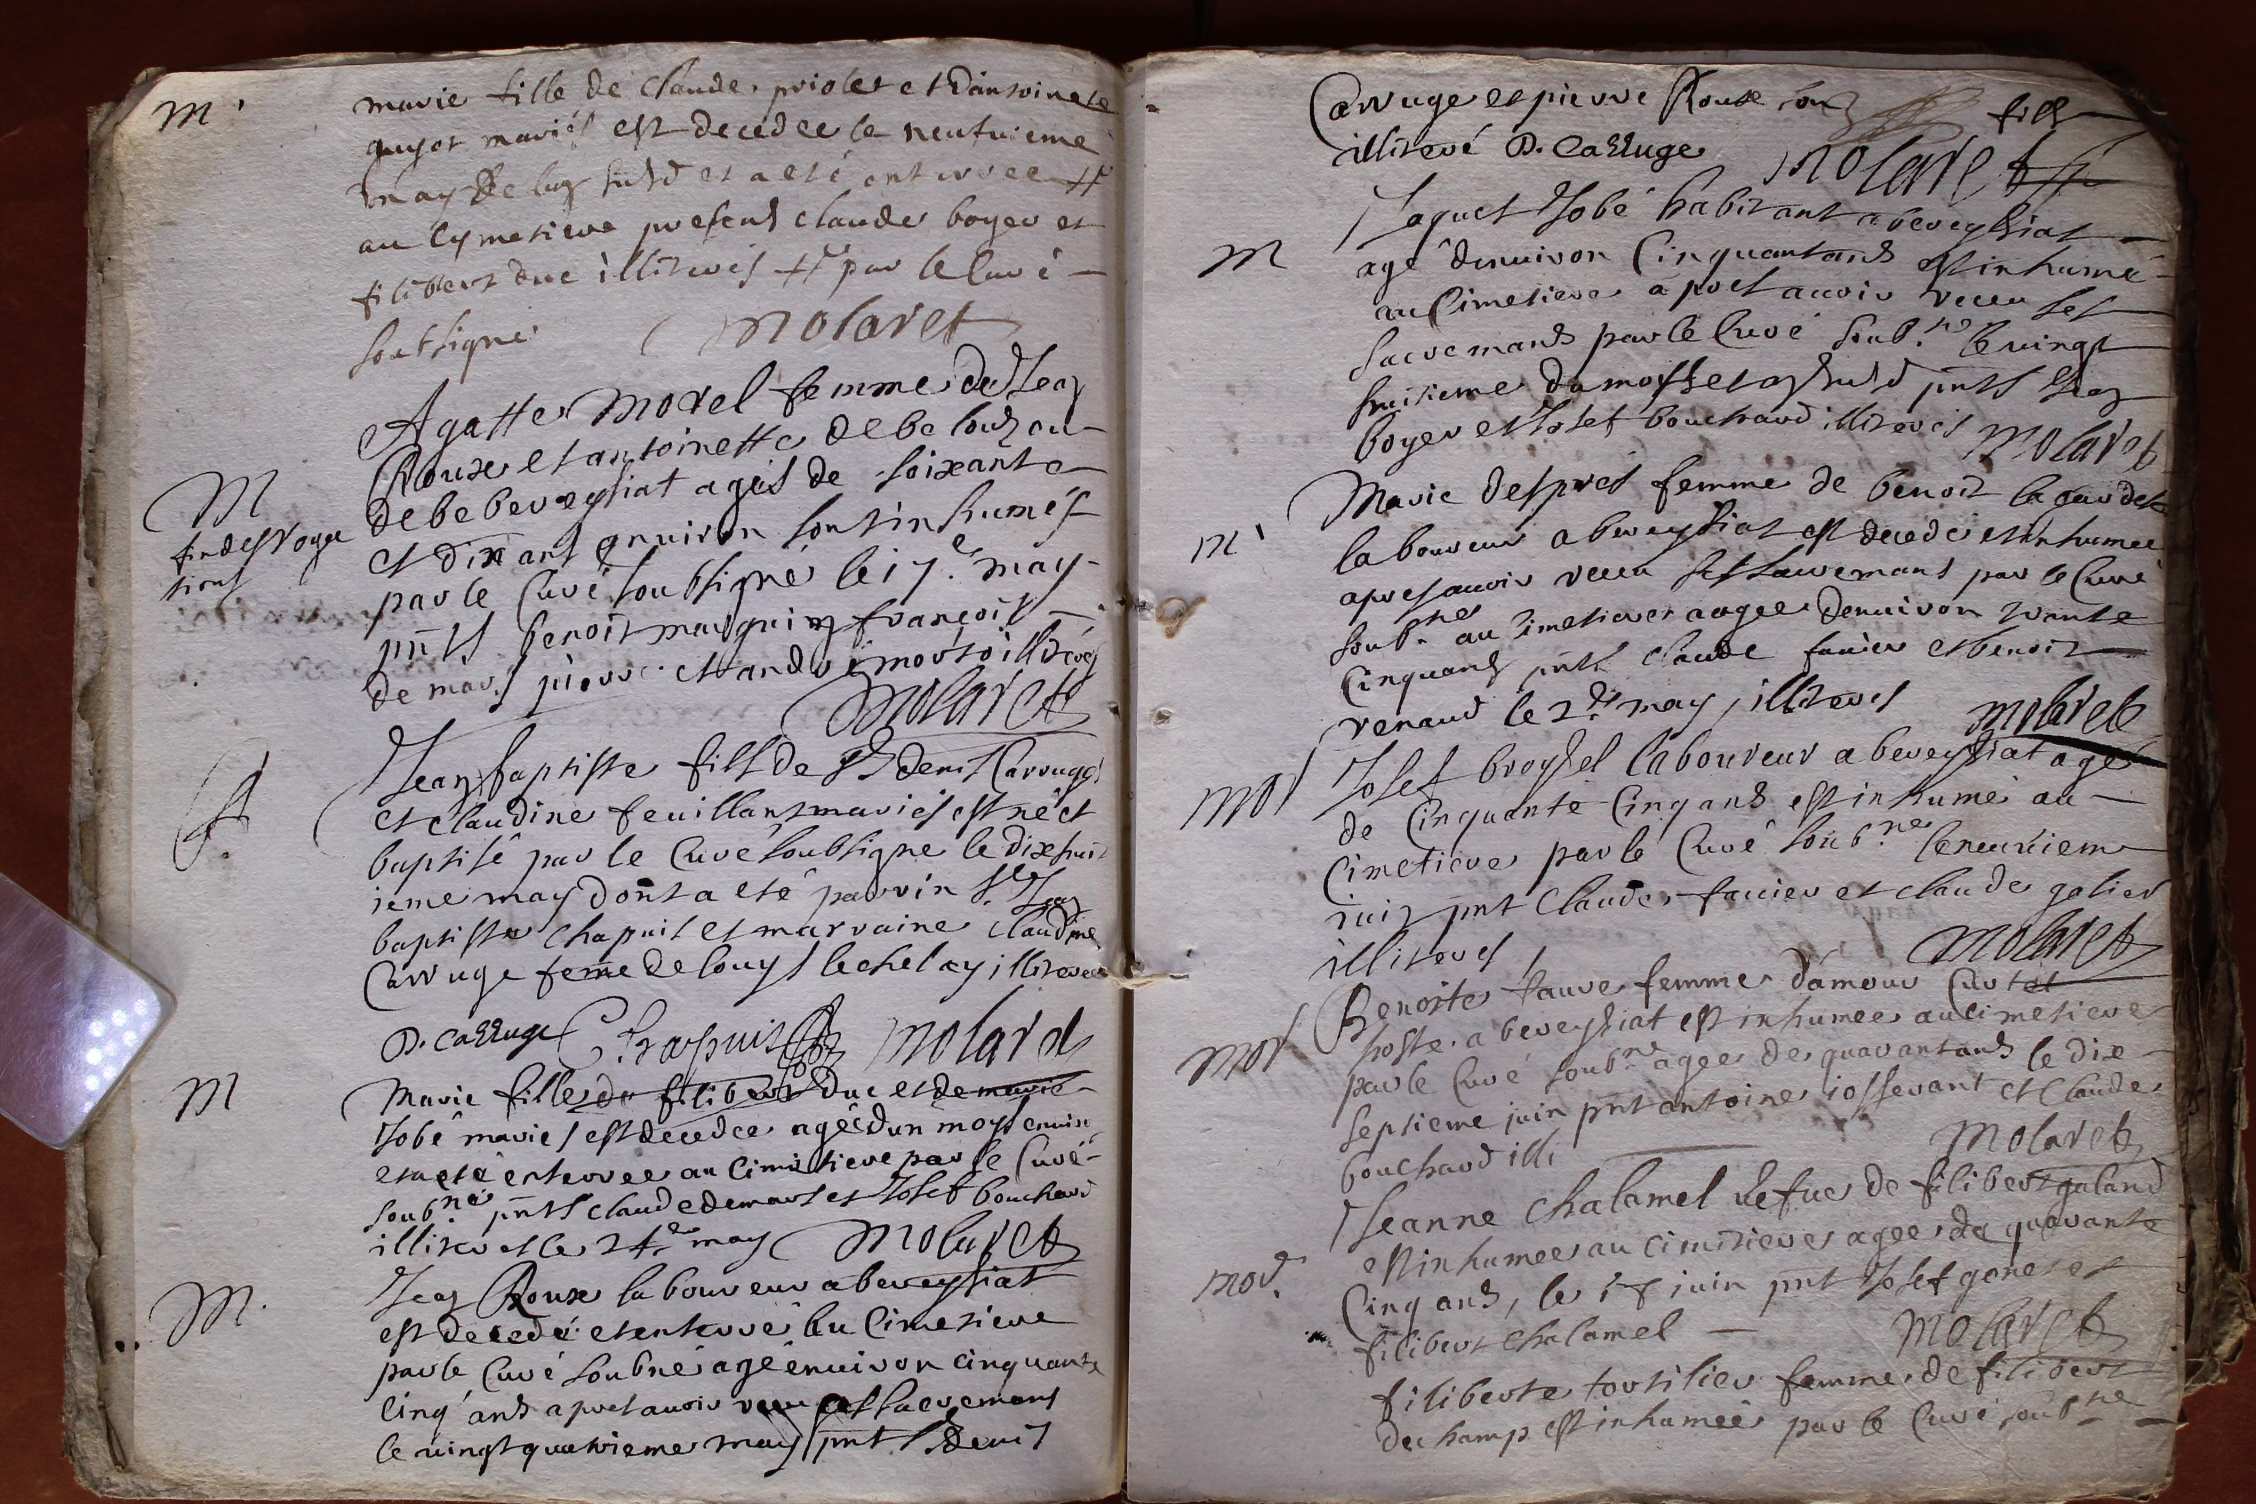 M.
marie fille de Claude priolet et d'antoinete
guyot mariés est decedee le neufuieme
may et a esté enterree #
au cymetiere presents claude boyer et
filibert duc illiterés # par le Curé
soubsigné Molaret
M
Agatte Morel femme de Jean
Roux et antoinette debeloudz en
debe beveysiat agés de soixante
et dix ans enuiron sont inhumés
par le Curé soubsigné le 17.e may
pnts benoit marguin françois
de mars pierre et andré morso illiterés
Molaret
Jean baptiste fils de Sr denis Carruge
et claudine feuillant mariés est né et
baptisé par le Curé soubsigné le dixhuit
ieme may dont a eté parrin Sr Jean
baptiste chapuit et marraine Claudine
Carruge feme de Louys lechelay illiteree
D. Carruge Chapuit Molaret
M
Marie fille de filibert duc et de marie
Jobé mariés est decedee agée d'un moys enuiron
et a eté enterree au Cimitiere par le Curé
soubné pnts claude demars et Josef bouchard
illiterés le 24.e may Molaret
M.
Jean Roux laboureur a beveysiat
est decedé et enterré au Cimetiere
par le Curé soubné agé enuiron cinquante
cinq ans apres auoir receu ses sacremens
le vingt quatrieme may pnt Sr denis
Carruge et pierre Roux son fils
illiteré D. Carruge Molaret
M
Jaquet Jobé habitant a beveysiat
agé denuiron Cinquant ans est inhumé
au Cimetiere apres auoir receu ses
sacremans par le Curé soub.né le vingt
huitieme du moys pnts Jean
boyer et Josef bouchard illiterés Molaret
M.
Marie despres femme de benoit
laboureur a beveysiat est decedé et inhumee
apres auoir receu ses sacremans par le Curé
soub.né au cimetiere aagee denuiron trante
Cinq ans pnts claude fauier et benoit
renaud le 2.d may illiterés Molaret
mor
Josef broysel laboureur a beveysiat agé
de Cinquante Cinq ans est inhumé au
Cimetiere par le Curé soub.né le neuuieme
juin pnt Claude fauier et claude golier
illiterés Molaret
mor
Benoite faure femme d'amour Curtet
hoste a beveysiat est inhumee au cimetiere
par le Curé soub.né agee de quarant ans le dix
septieme juin pnt antoine josserant et Claude
bouchard illi Molaret
mor.
Jeanne Chalamel vefue de filibert galand
est inhumee au cimitiere agee de quarante
Cinq ans, le juin pnt Josef et
filibert Chalamel Molaret
filiberte tortilier femme de filibert
dechamp est inhumée par le Curé soubné